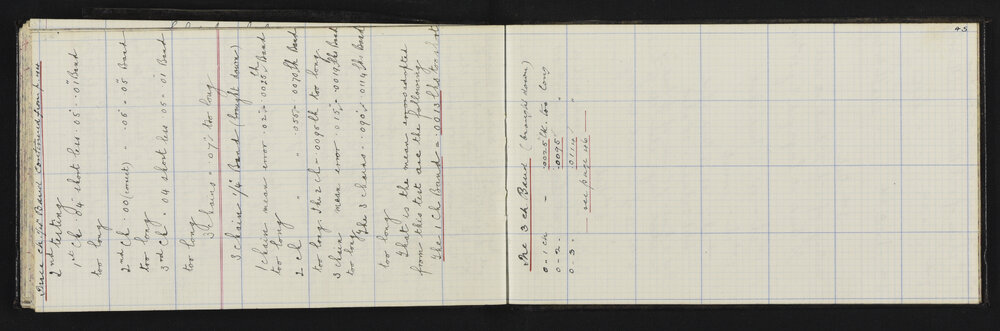 Three Ch. 1/4" Band Continued from p 44
2nd testing
1st Ch. .04 short less .05 = .01 Band
too long
2nd Ch .00 (correct) - .05 = .05 Band
too long
3rd Ch = .04 short less .05 = .01 Band
too long
3 chains = .07 too long
3 chain 1/4" Band (brought down)
1 chain mean error .02 = .0025 Band
too long
2 ch " " .055 = .0070 lk Band
too long. The 2 ch = .0095 lk too long.
3 chain mean error .015 = .0019 lk Band
too long. The 3 chains = .090 / .0114 lk Band
too long
That is the mean errors adopted
from this test are the following
The 1 Ch Band = .0013 lks too short
45
The 3 ch Band (brought down)
0 - 1 ch - .0025 lk. too long
0 - 2 - .0095 "
0 - 3 - .0114 "
see page 46